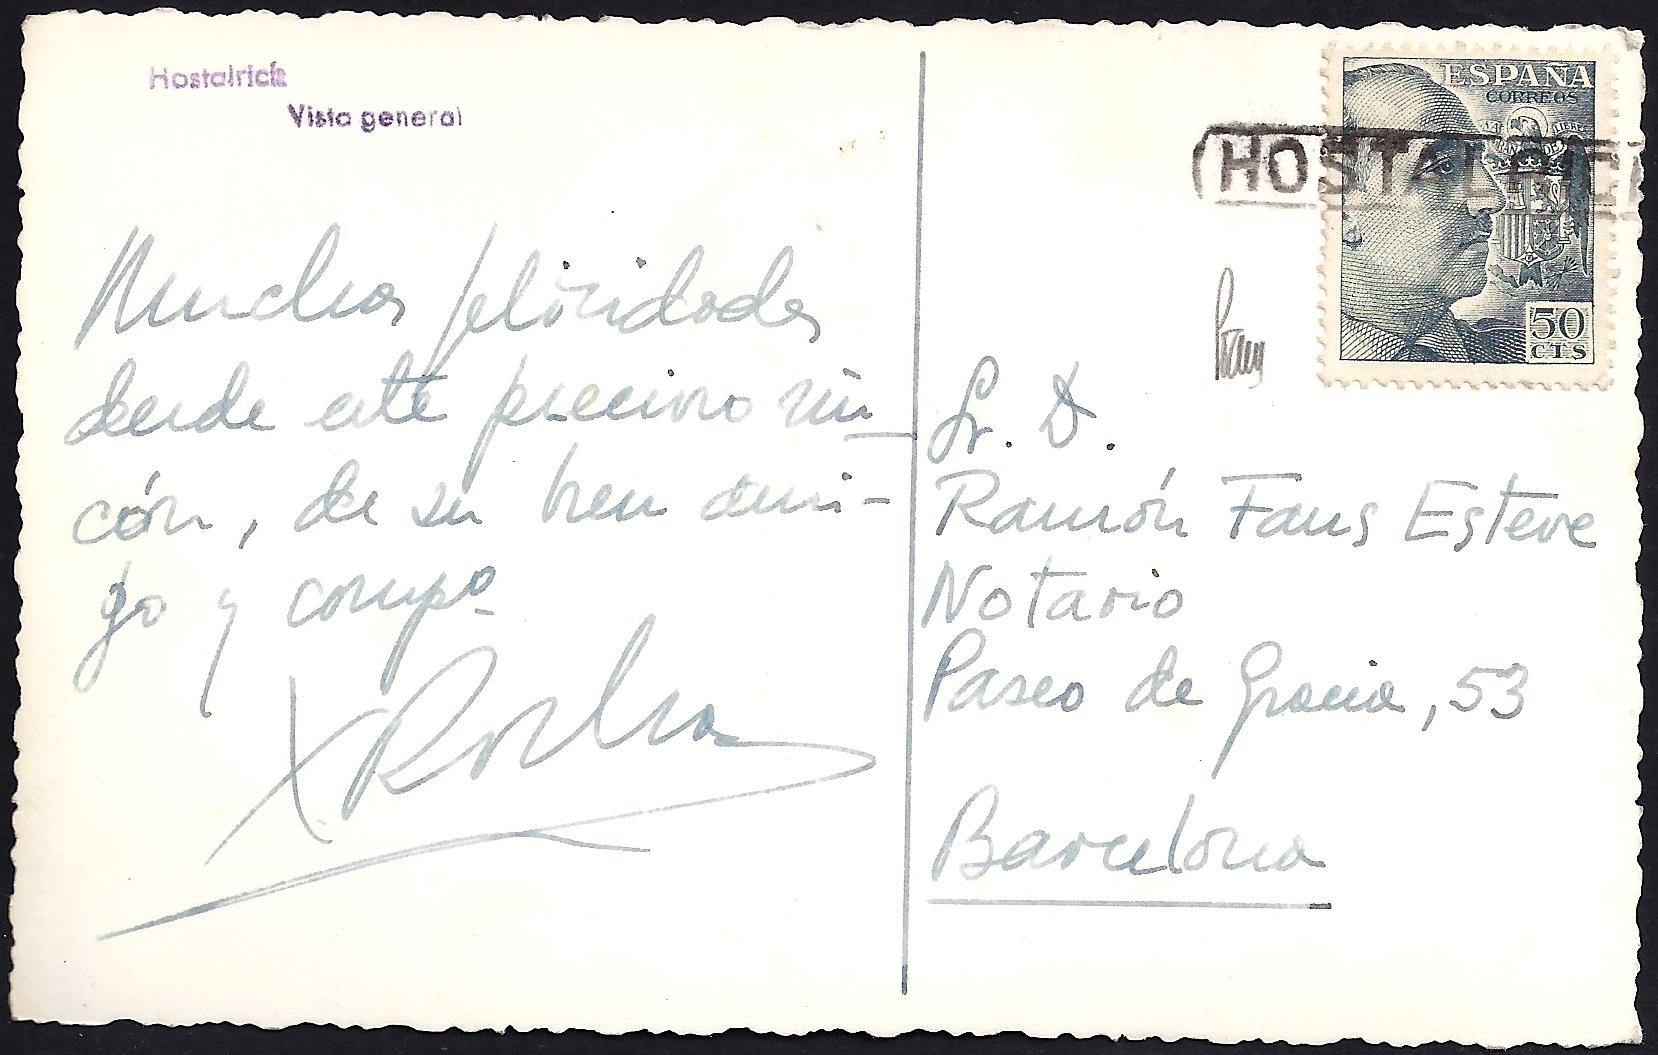 Hostalrich
Vista general
Muchas felicidades
desde este precioso rin-
cón, de su buen ami-
go y compº
ESPAÑA
CORREOS
HOSTALRIC
50
CTS
Sr. D.
Ramón Faus Esteve
Notario
Paseo de Gracia, 53
Barcelona